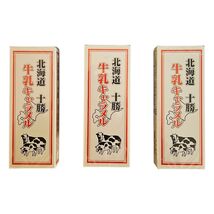 北海道 十勝
牛乳キャラメル
北海道 十勝
牛乳キャラメル
北海道 十勝
牛乳キャラメル